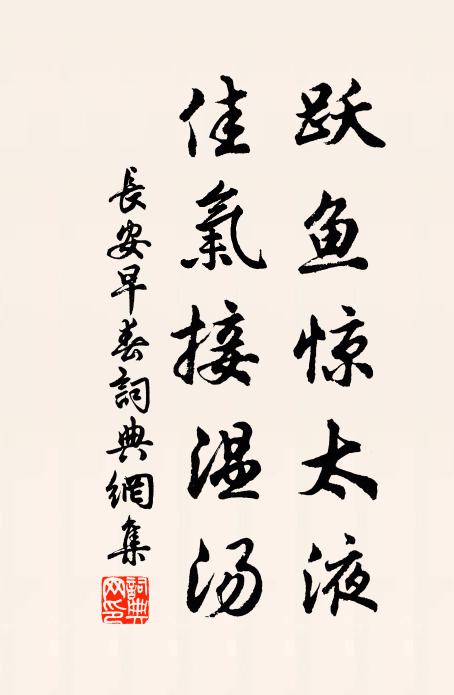 跃鱼惊太液
佳氣接温汤
長安早春詞典網集
詞典網印